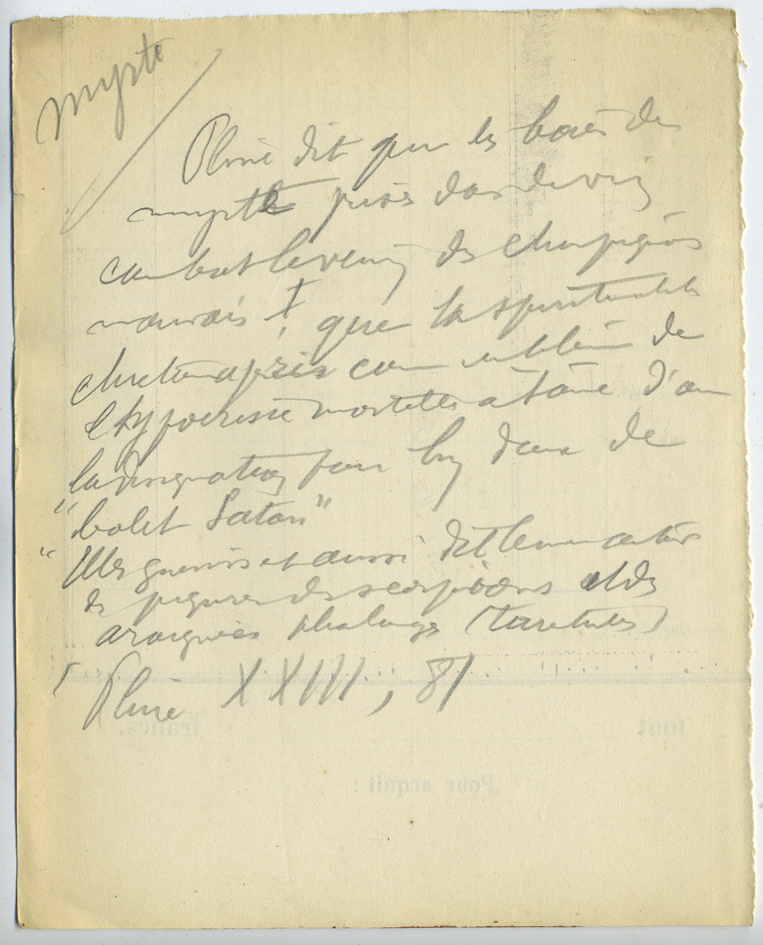 myrte
Pline dit que les baies de
myrte prises dans de vin
combat le venin des champignons
mauvais que la spiritualité
chrétienne a pris comme emblème de
l'hypocrisie mortelle à l'âme d'où
la désignation pour l'un d'eux de
"bolet Satan"
"Elles guérissent aussi dit le naturaliste
les piqures des scorpions et des
araignées phalanges (tarentules)
Pline XXIII, 81
tout francs.
Pour acquit :